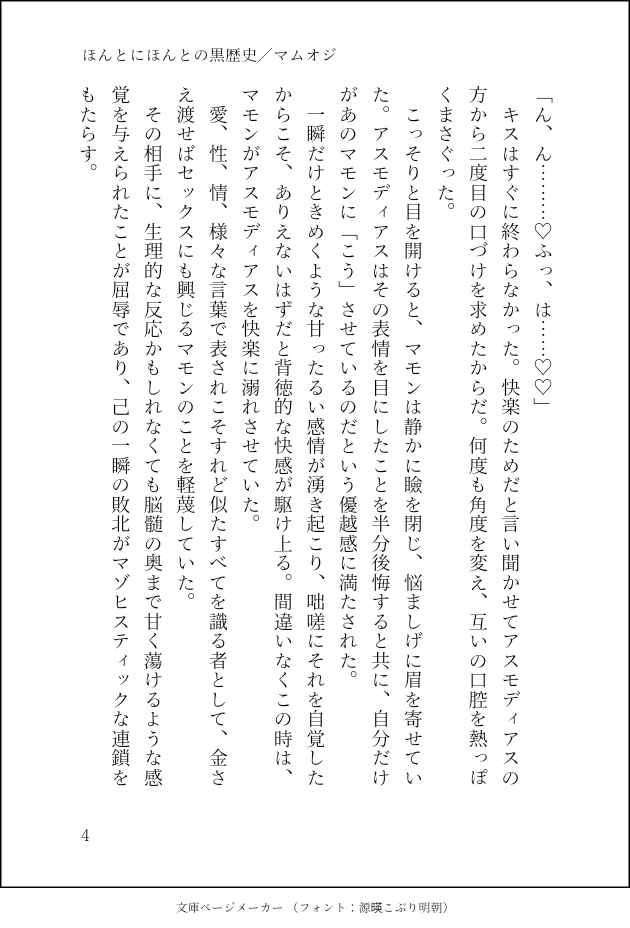 ほんとにほんとの黒歴史／マムオジ
「ん、ん………♡ふっ、は……♡♡」
　キスはすぐに終わらなかった。快楽のためだと言い聞かせてアスモディアスの
方から二度目の口づけを求めたからだ。何度も角度を変え、互いの口腔を熱っぽ
くまさぐった。
　こっそりと目を開けると、マモンは静かに瞼を閉じ、悩ましげに眉を寄せてい
た。アスモディアスはその表情を目にしたことを半分後悔すると共に、自分だけ
があのマモンに「こう」させているのだという優越感に満たされた。
　一瞬だけときめくような甘ったるい感情が湧き起こり、咄嗟にそれを自覚した
からこそ、ありえないはずだと背徳的な快感が駆け上る。間違いなくこの時は、
マモンがアスモディアスを快楽に溺れさせていた。
　愛、性、情、様々な言葉で表されこそすれど似たすべてを識る者として、金さ
え渡せばセックスにも興じるマモンのことを軽蔑していた。
　その相手に、生理的な反応かもしれなくても脳髄の奥まで甘く蕩けるような感
覚を与えられたことが屈辱であり、己の一瞬の敗北がマゾヒスティックな連鎖を
もたらす。
4
文庫ページメーカー（フォント：源暎こぶり明朝）